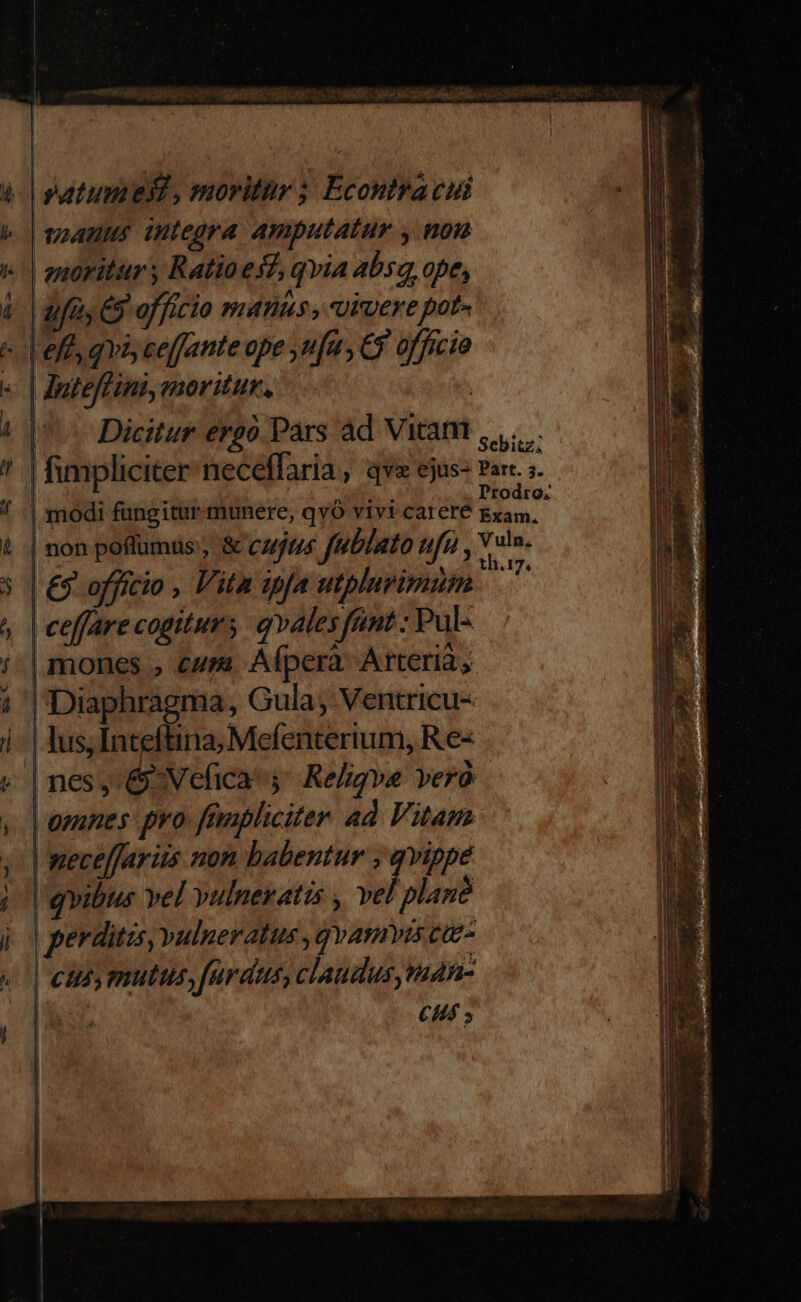 vatum est, moritur; Econtra cui
manus integra amputatur, non
moritur; Ratio est, qvia absq, ope,
usu, & officio manus, vivere pot-
est, qvi, cessante ope, usu, & officio
Intestini, moritur.
Dicitur ergò Pars ad Vitam
simpliciter necessaria, qvæ ejus-
modi fungitur munere, qvô vivi carere
non possumus, & cujus sublato usu,
& officio, Vita ipsa utplurimùm
cessare cogitur; qvales sunt: Pul-
mones, cum Asperâ Arteriâ,
Diaphragma, Gula, Ventricu-
lus, Intestina, Mesenterium, Re-
nes, & Vesica; Reliqvæ verò
omnes pro simpliciter ad Vitam
necessariis non habentur, qvippe
qvibus vel vulneratis, vel planè
perditis, vulneratus, qvamvis cæ-
cus, mutus, surdus, claudus, man-
cus,
Sebitz.
Part. 3.
Prodro.
Exam.
Vuln.
th.17.